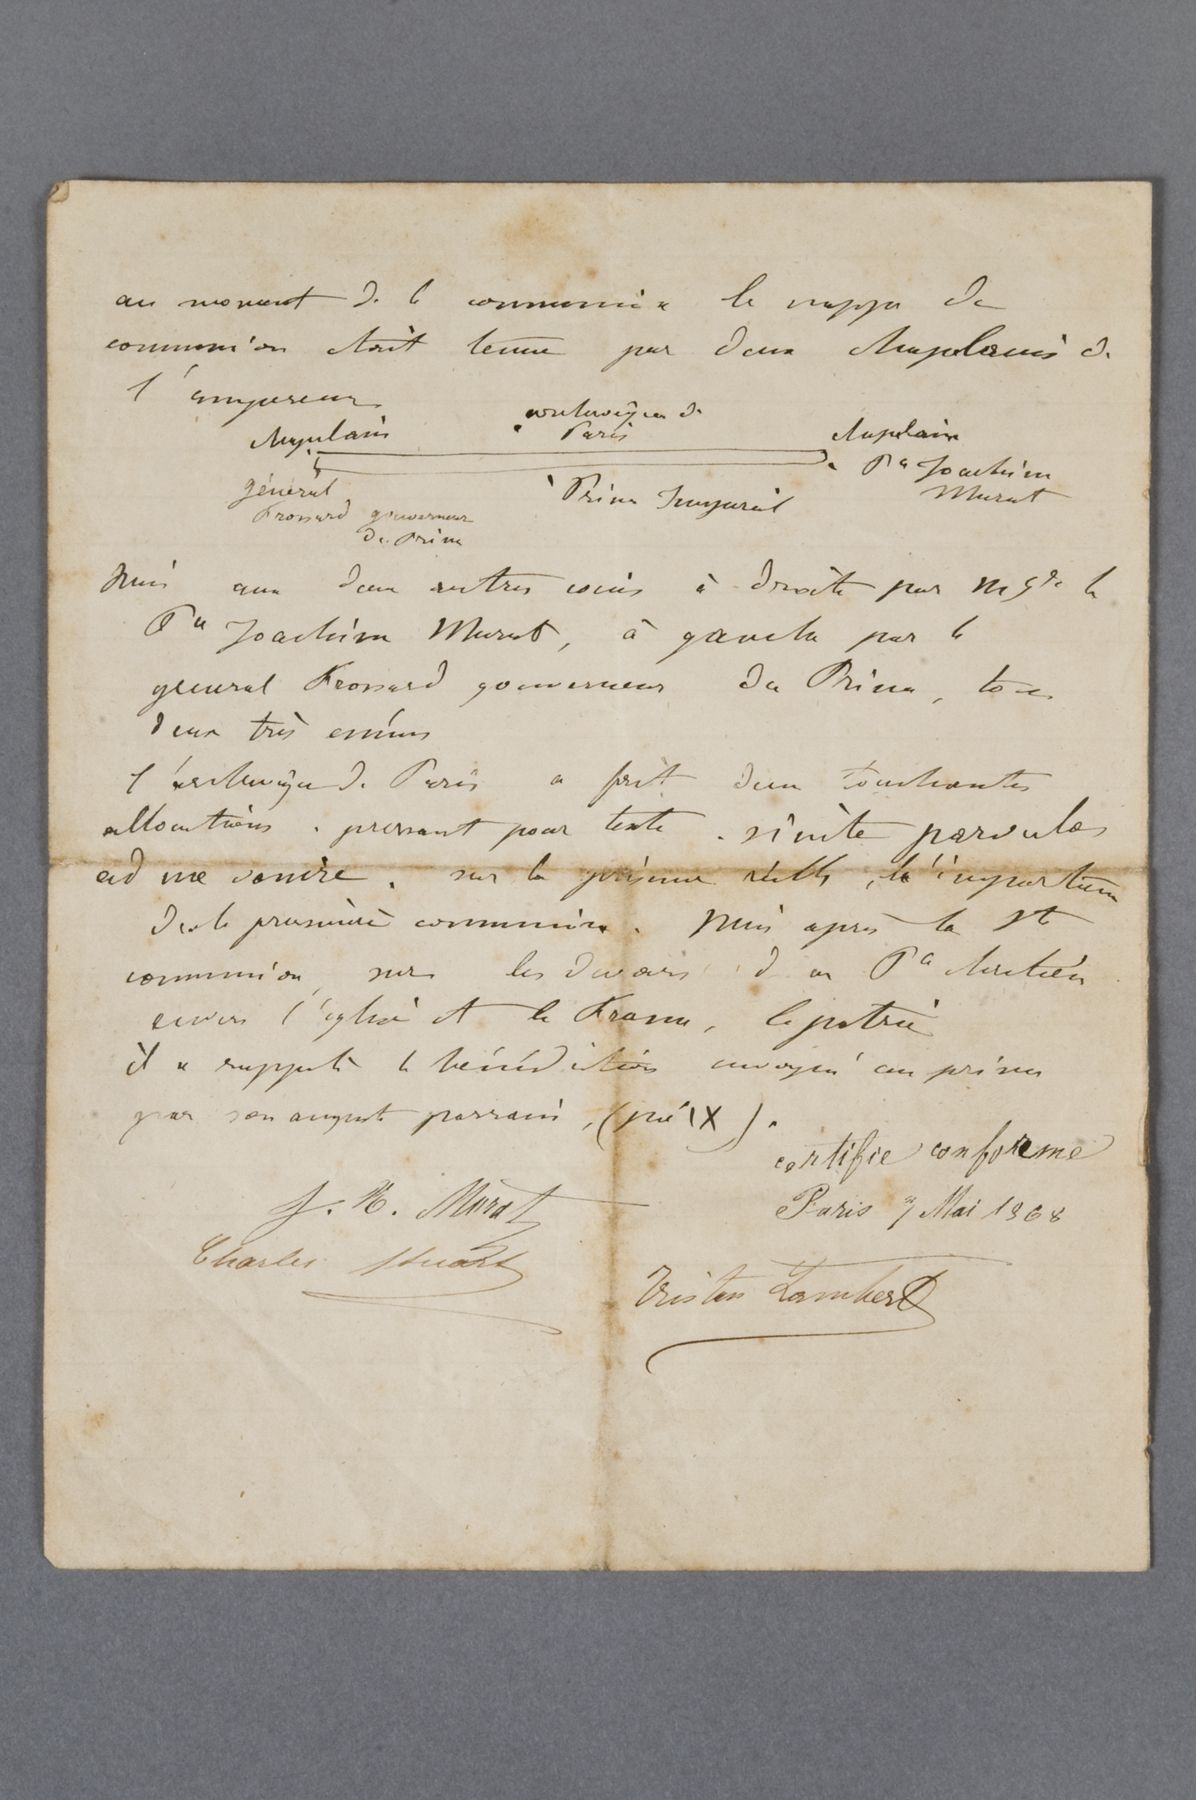 au moment de la communion la nappe de
communion était tenue par deux chapelains de
l'empereur
archevêque de
Paris
chapelain
chapelain
Pce Joachim
Murat
général
Frossard gouverneur
du Prince
Prince Impérial
puis aux deux autres coins à droite par Mgr le
Pce Joachim Murat, à gauche par le
général Frossard gouverneur du Prince, tous
deux très émus
l'archevêque de Paris a fait deux touchantes
allocutions. prenant pour texte. sinite parvulos
ad me venire. sur la présence réelle, l'importance
de la première communion. puis après la Ste
communion, sur les devoirs d'un Pce chrétien
envers l'église et la France, la patrie
il a rappelé la bénédiction envoyée au prince
par son auguste parrain, (pie IX).
certifie conforme
Paris 7 Mai 1868
J. N. Murat
Charles
Tristan Lambert